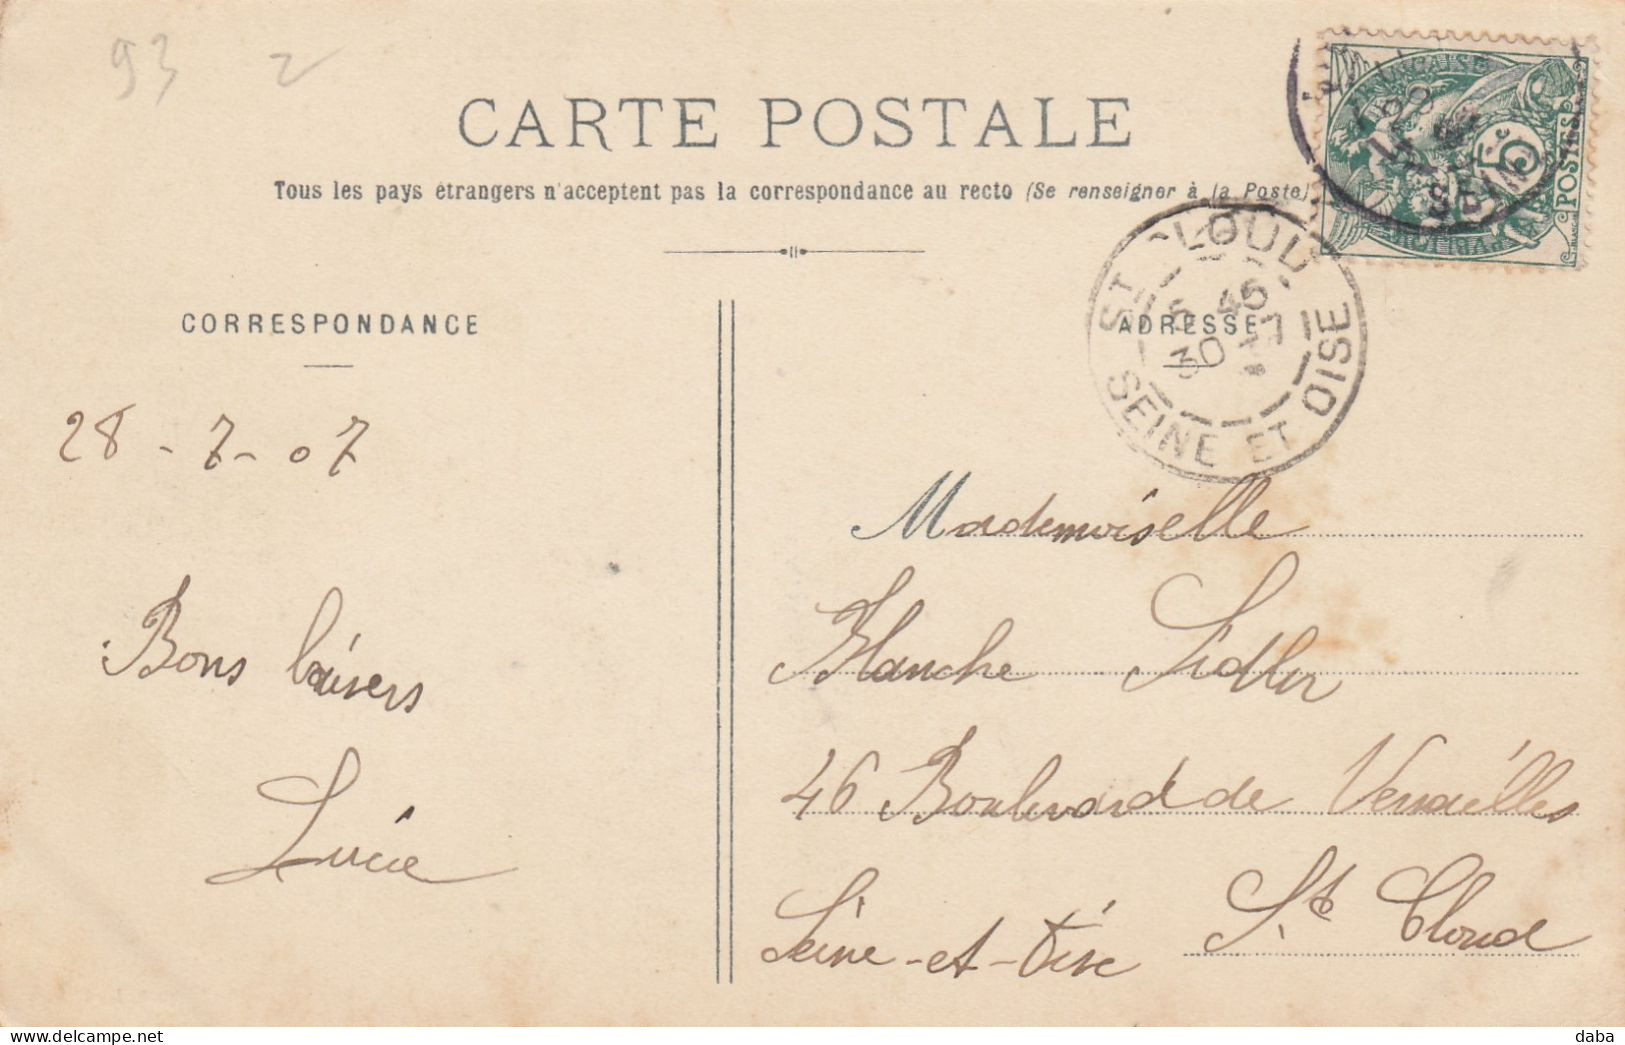 93 2
CARTE POSTALE
Tous les pays étrangers n'acceptent pas la correspondance au recto (Se renseigner à la Poste)
5
POSTES
SEINE
ST CLOUD
5 45
30 7
SEINE ET OISE
CORRESPONDANCE
ADRESSE
28 - 7 - 07
Bons baisers
Lucie
Mademoiselle
Blanche Sidler
46 Boulevard de Versailles
St Cloud
Seine-et-Oise
www.delcampe.net
daba